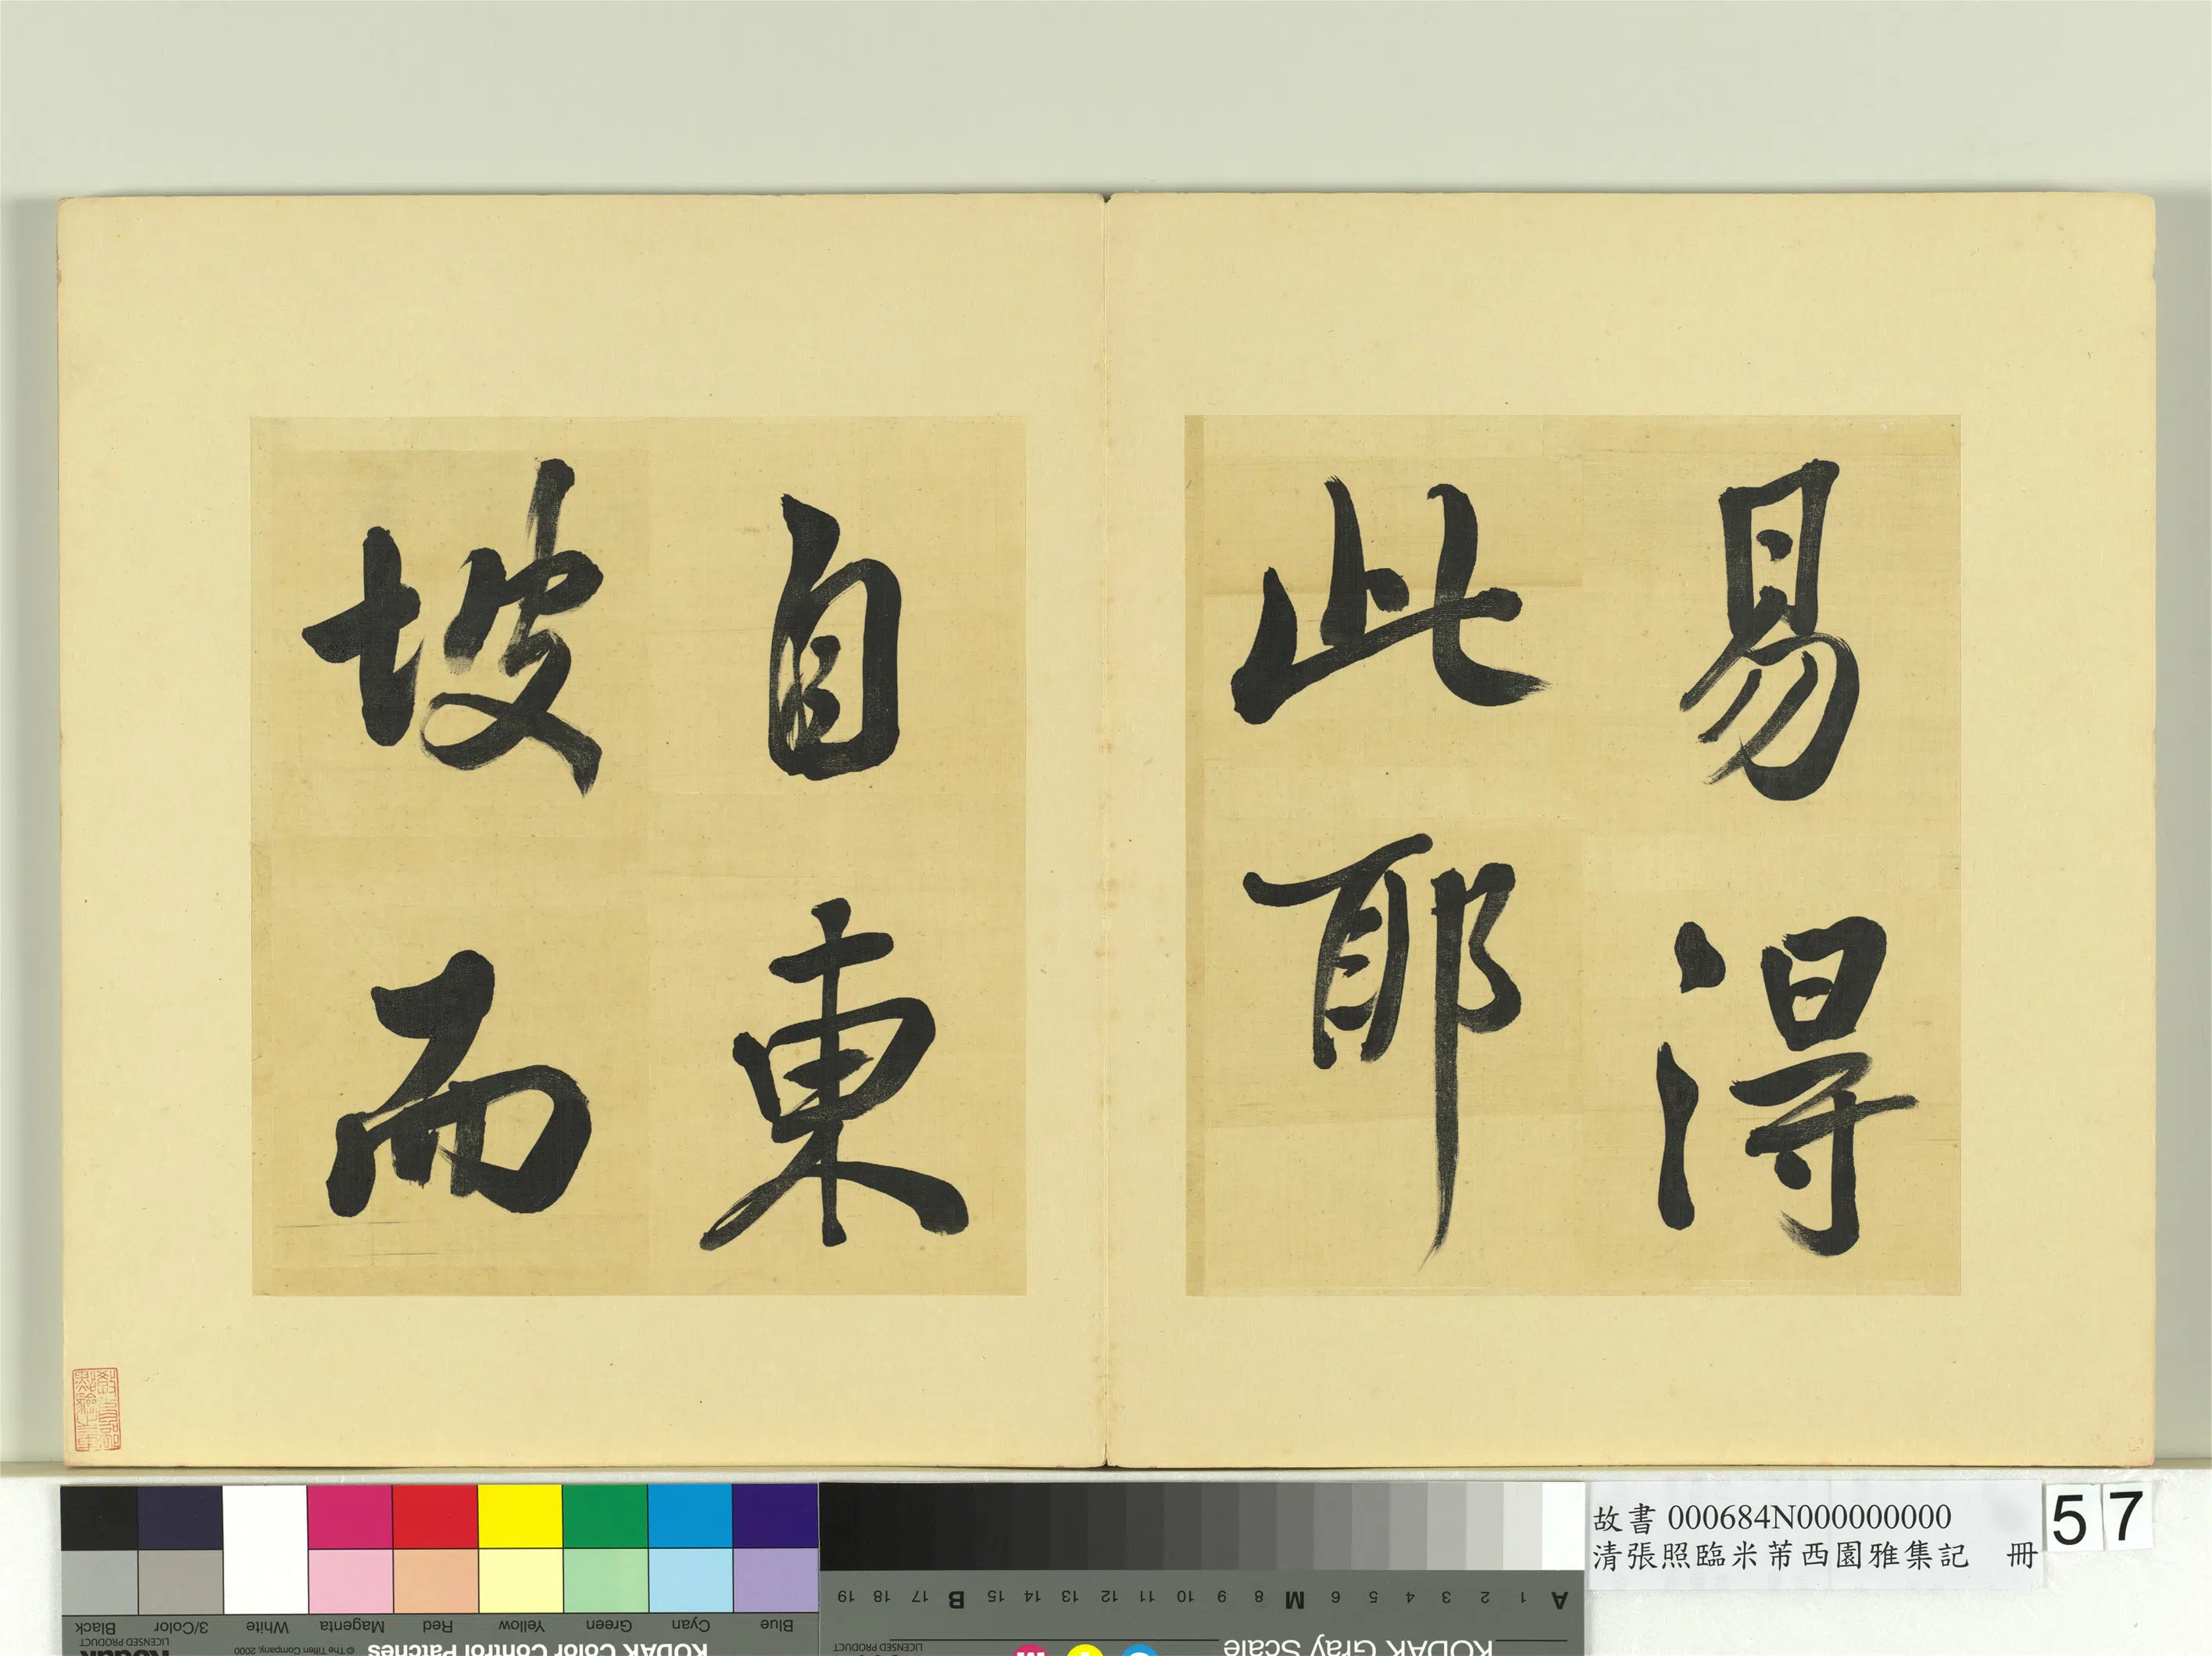 易得
此耶
自東
坡而
教育部
點驗之章
故書 000684N000000000
清張照臨米芾西園雅集記 冊
57
Black
3/Color
White
Magenta
Red
Yellow
Green
Cyan
Blue
LICENSED PRODUCT
© The Tiffen Company, 2000
KODAK Color Control Patches
A 1 2 3 4 5 6 M 8 9 10 11 12 13 14 15 B 17 18 19
KODAK Gray Scale
LICENSED PRODUCT